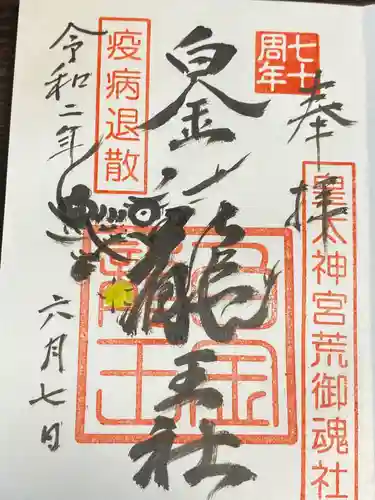 奉拝
七十周年
皇太神宮荒御魂社
白金龍王社
疫病退散
令和二年
六月七日